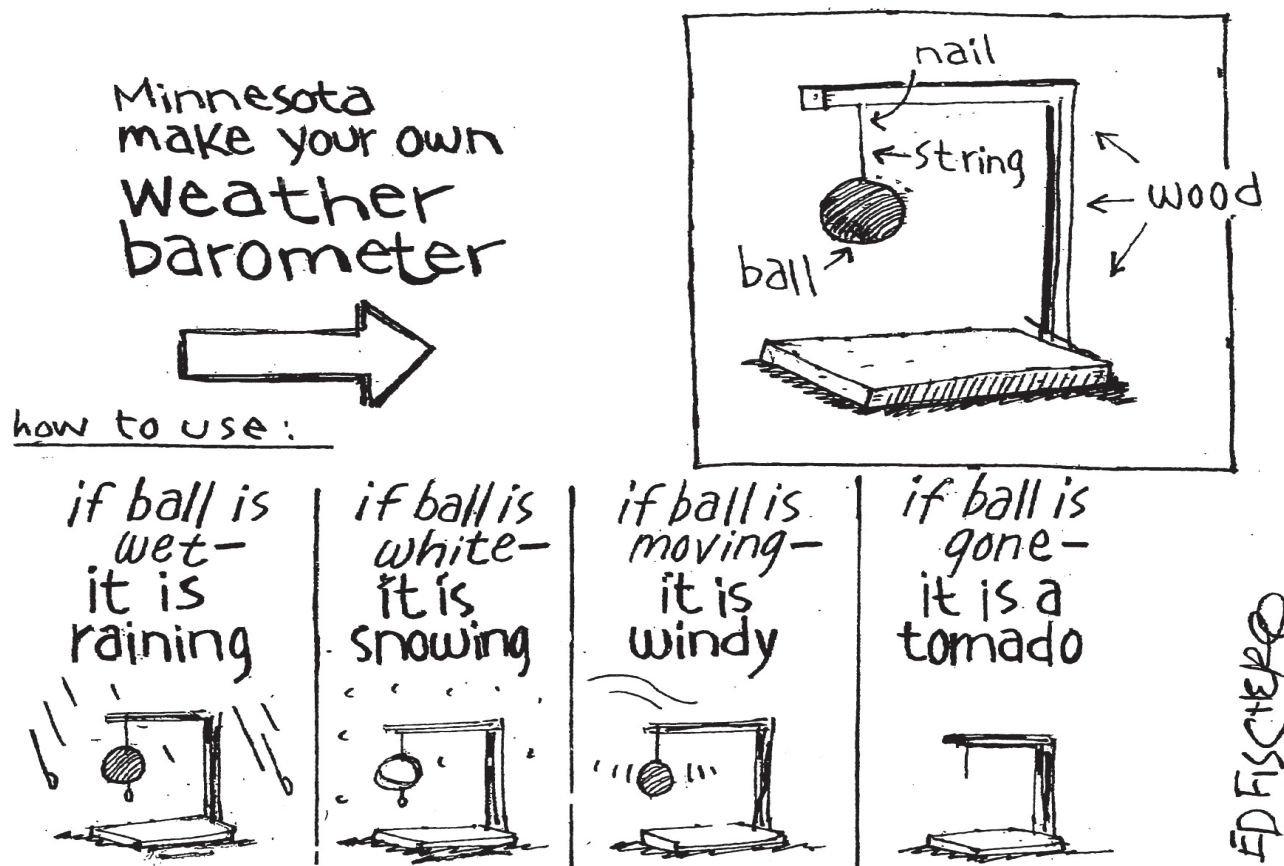 Minnesota
make your own
Weather
barometer
nail
string
wood
ball
how to use:
if ball is
wet—
it is
raining
if ball is
white—
it is
snowing
if ball is
moving—
it is
windy
if ball is
gone—
it is a
tornado
ED FISCHER